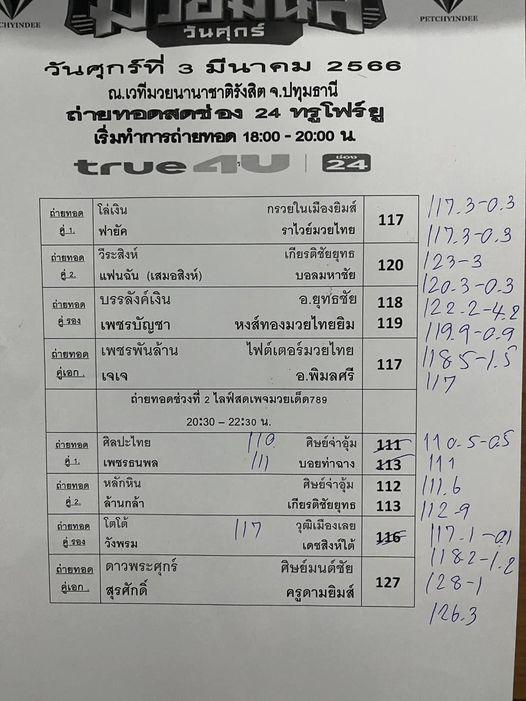 PETCHYINDEE
วันศุกร์
วันศุกร์ที่ 3 มีนาคม 2566
ณ.เวทีมวยนานาชาติรังสิต จ.ปทุมธานี
ถ่ายทอดสดช่อง 24 ทรูโฟร์ยู
เริ่มทำการถ่ายทอด 18:00 - 20:00 น
true4U ช่อง 24
ถ่ายทอด โล่เงิน กรวยในเมืองยิมส์ 117 117.3-0.3
คู่ 1. ฟายัค ราไวย์มวยไทย 117.3-0.3
ถ่ายทอด วีระสิงห์ เกียรติชัยยุทธ 120 123-3
คู่ 2. แฟนฉัน (เสมอสิงห์) บอลมหาชัย 120.3-0.3
ถ่ายทอด บรรลังค์เงิน อ.ยุทธชัย 118 122.2-4.2
คู่ รอง เพชรบัญชา หงส์ทองมวยไทยยิม 119 119.9-0.9
ถ่ายทอด เพชรพันล้าน ไฟต์เตอร์มวยไทย 117 118.5-1.5
คู่เอก . เจเจ อ.พิมลศรี 117
ถ่ายทอดช่วงที่ 2 ไลฟ์สดเพจมวยเด็ด789
20:30 – 22:30 น.
ถ่ายทอด ศิลปะไทย 110 ศิษย์จ่าอุ้ม 111 110.5-0.5
คู่ 1. เพชรธนพล 111 บอยท่าฉาง 113 111
ถ่ายทอด หลักหิน ศิษย์จ่าอุ้ม 112 111.6
คู่ 2. ล้านกล้า เกียรติชัยยุทธ 113 112.9
ถ่ายทอด โตโต้ 117 วุฒิเมืองเลย 116 117.1-0.1
คู่ รอง วังพรม เดชสิงห์ใต้ 118.2-1.2
ถ่ายทอด ดาวพระศุกร์ ศิษย์มนต์ชัย 127 128-1
คู่เอก . สุรศักดิ์ ครูดามยิมส์ 126.3